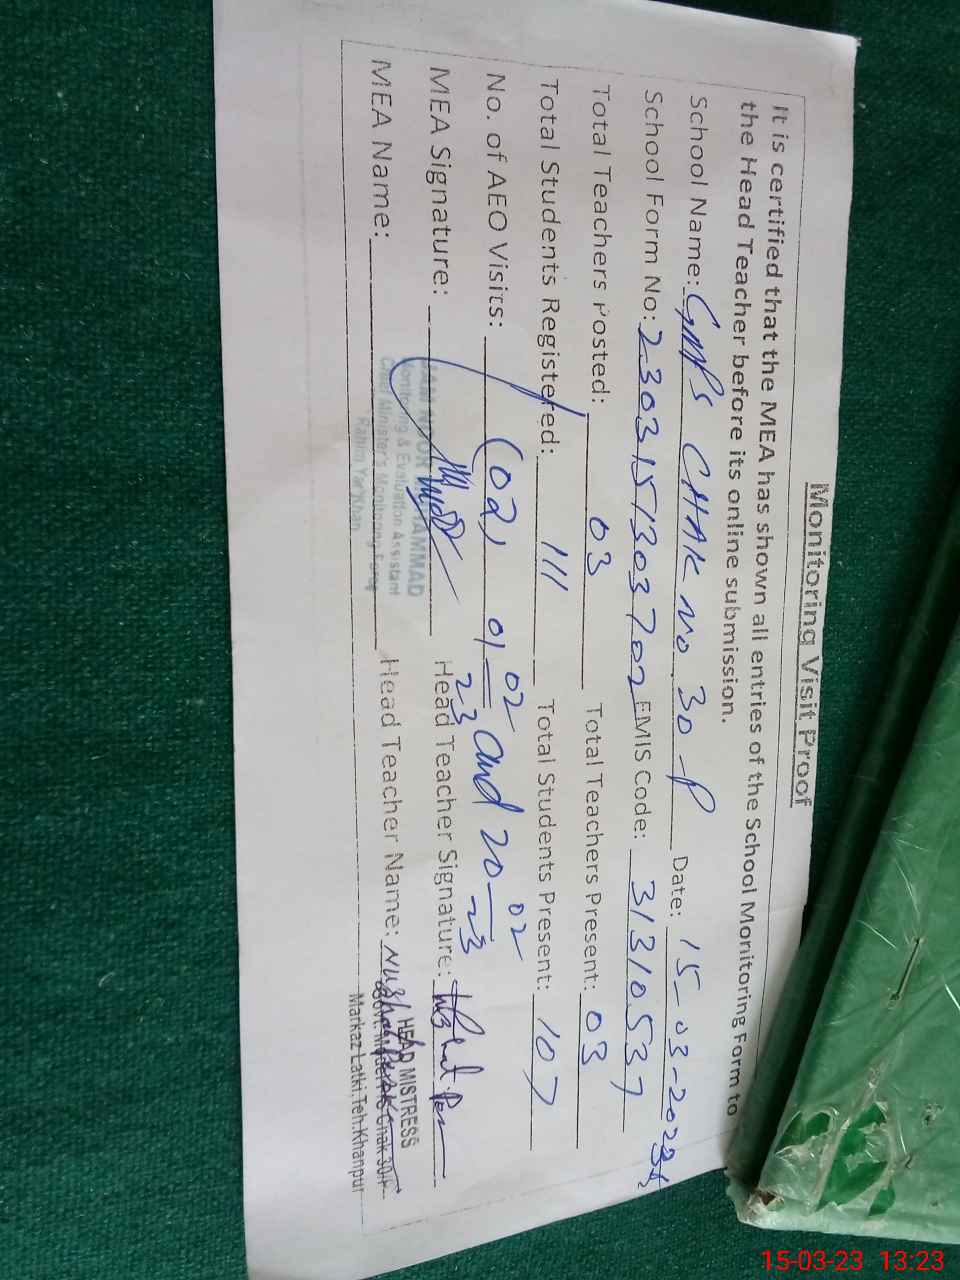 Monitoring Visit Proof
It is certified that the MEA has shown all entries of the School Monitoring Form to
the Head Teacher before its online submission.
School Name: GMPS CHAK NO 30-P Date: 15-03-2023
School Form No: 2303151303702 EMIS Code: 31310537
Total Teachers Posted: 03 Total Teachers Present: 03
Total Students Registered: 111 Total Students Present: 107
No. of AEO Visits: (02) 01-02-23 and 20-02-23
MEA Signature: Head Teacher Signature:
MUHAMMAD
Monitoring & Evaluation Assistant
Chief Minister's Monitoring Force
Rahim Yar Khan
MEA Name: Head Teacher Name:
HEAD MISTRESS
Govt. Chak 30/P
Markaz Latki, Teh. Khanpur
15-03-23 13:23